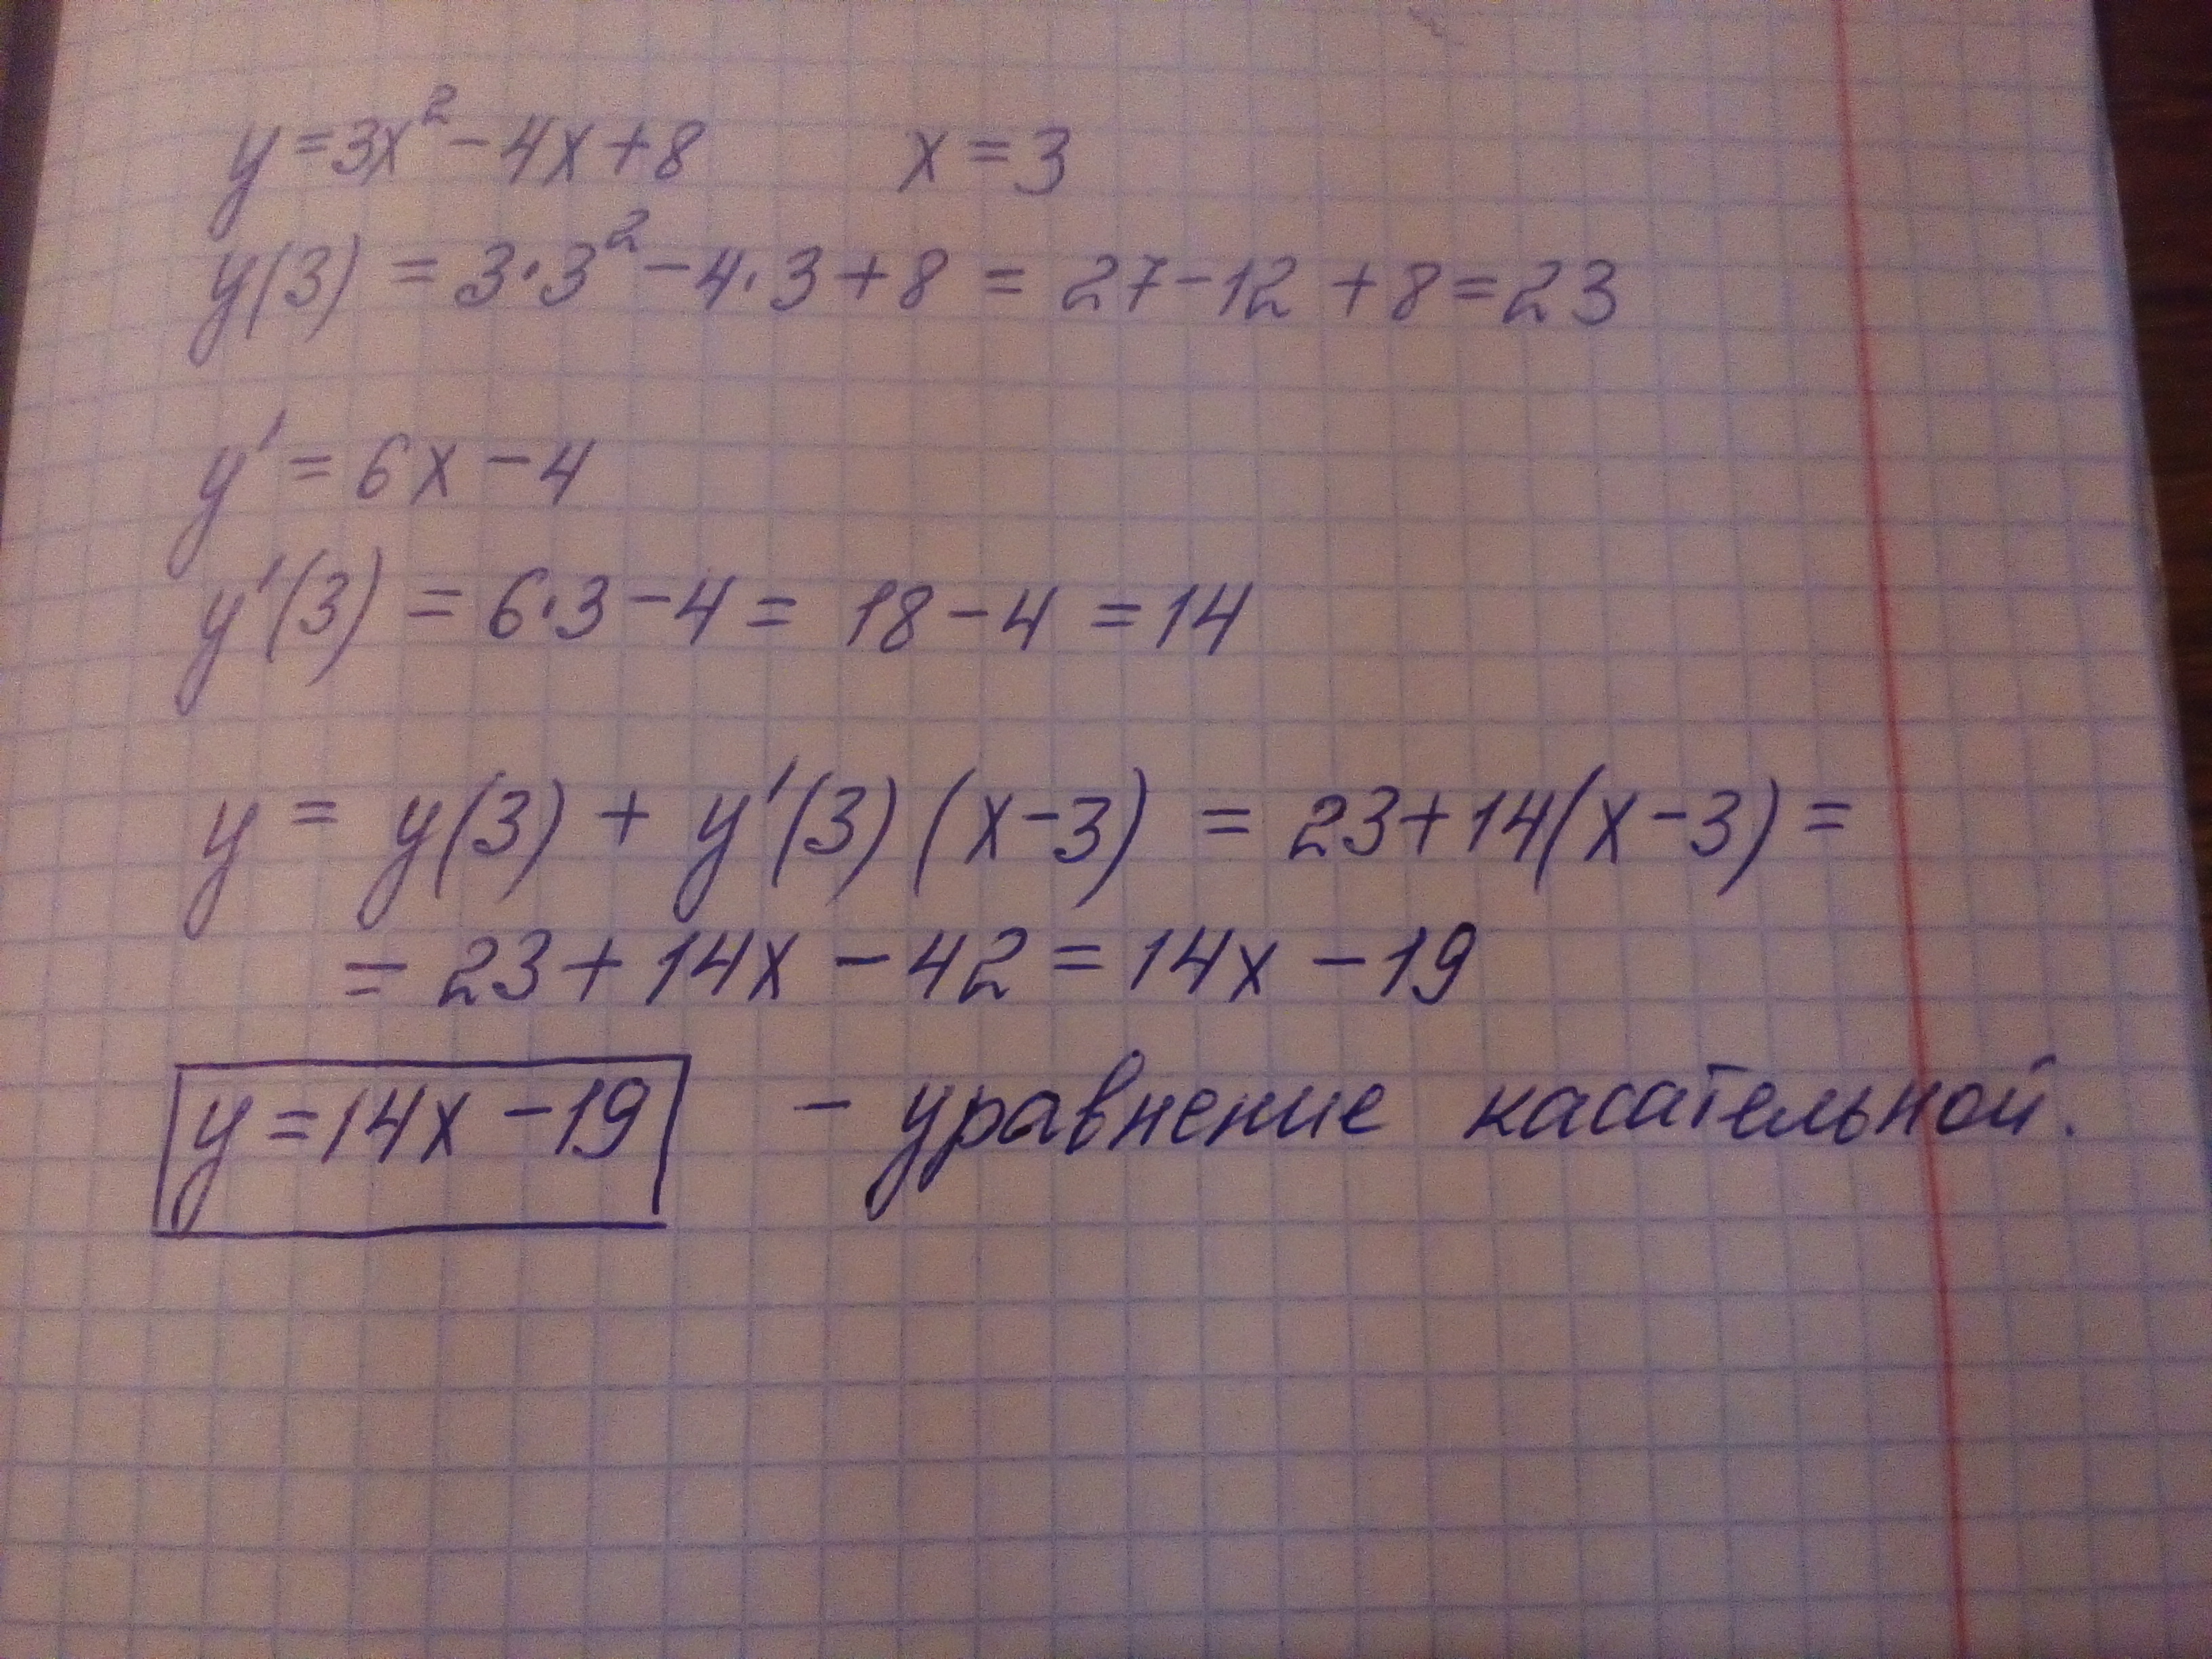 y=3x²-4x+8 x=3
y(3) = 3·3²-4·3+8 = 27-12+8=23
y' = 6x-4
y'(3) = 6·3-4= 18-4 =14
y = y(3) + y'(3)(x-3) = 23+14(x-3)=
= 23+14x-42=14x-19
y=14x-19 - уравнение касательной.